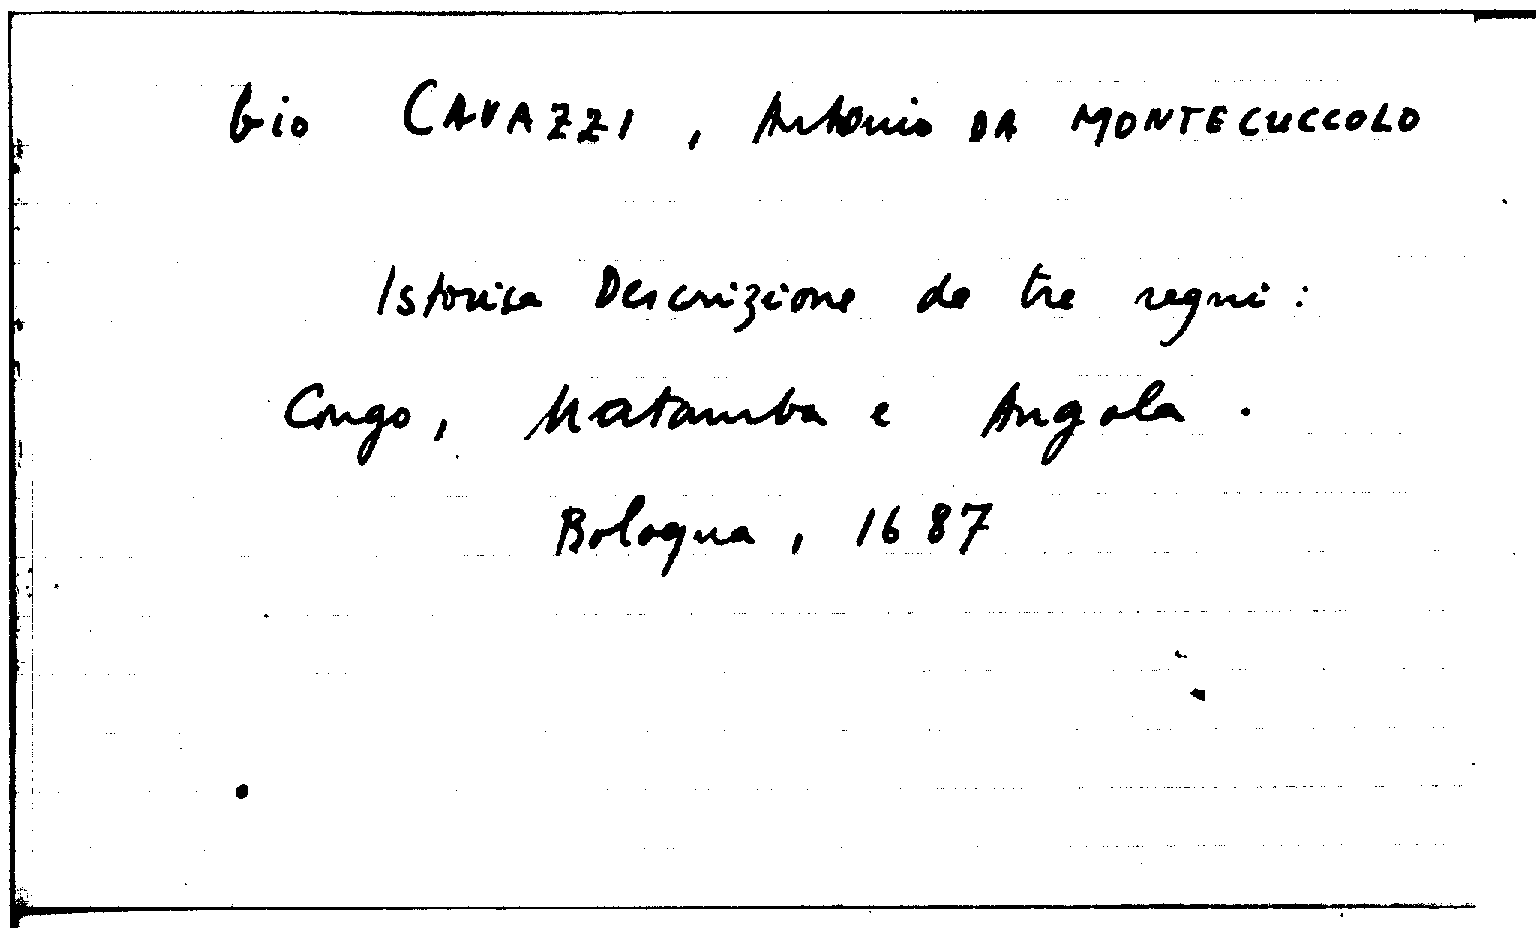 Gio CAVAZZI, Antonio DA MONTECUCCOLO
Istorica Descrizione de tre regni :
Congo, Matamba e Angola .
Bologna, 1687